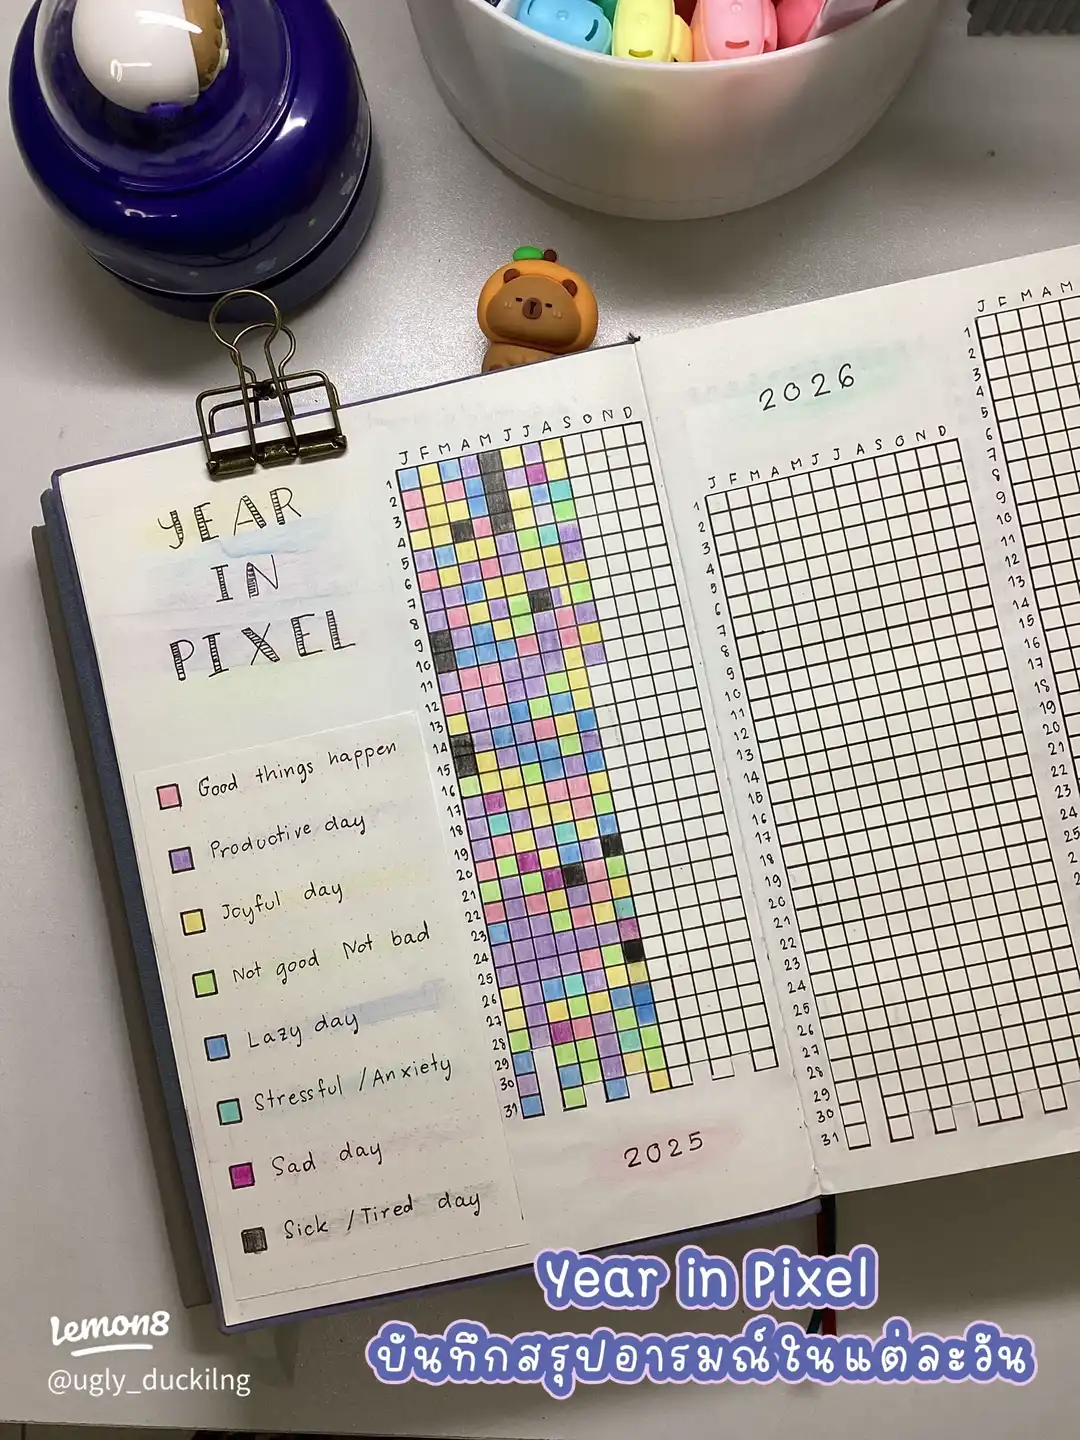 YEAR
IN
PIXEL
Good things happen
Productive day
Joyful day
Not good Not bad
Lazy day
Stressful / Anxiety
Sad day
Sick / Tired day
J F M A M J J A S O N D
1
2
3
4
5
6
7
8
9
10
11
12
13
14
15
16
17
18
19
20
21
22
23
24
25
26
27
28
29
30
31
2025
2026
J F M A M J J A S O N D
1
2
3
4
5
6
7
8
9
10
11
12
13
14
15
16
17
18
19
20
21
22
23
24
25
26
27
28
29
30
31
J F M A M
1
2
3
4
5
6
7
8
9
10
11
12
13
14
15
16
17
18
19
20
21
22
23
24
Year in Pixel
บันทึกสรุปอารมณ์ในแต่ละวัน
Lemon8
@ugly_duckilng